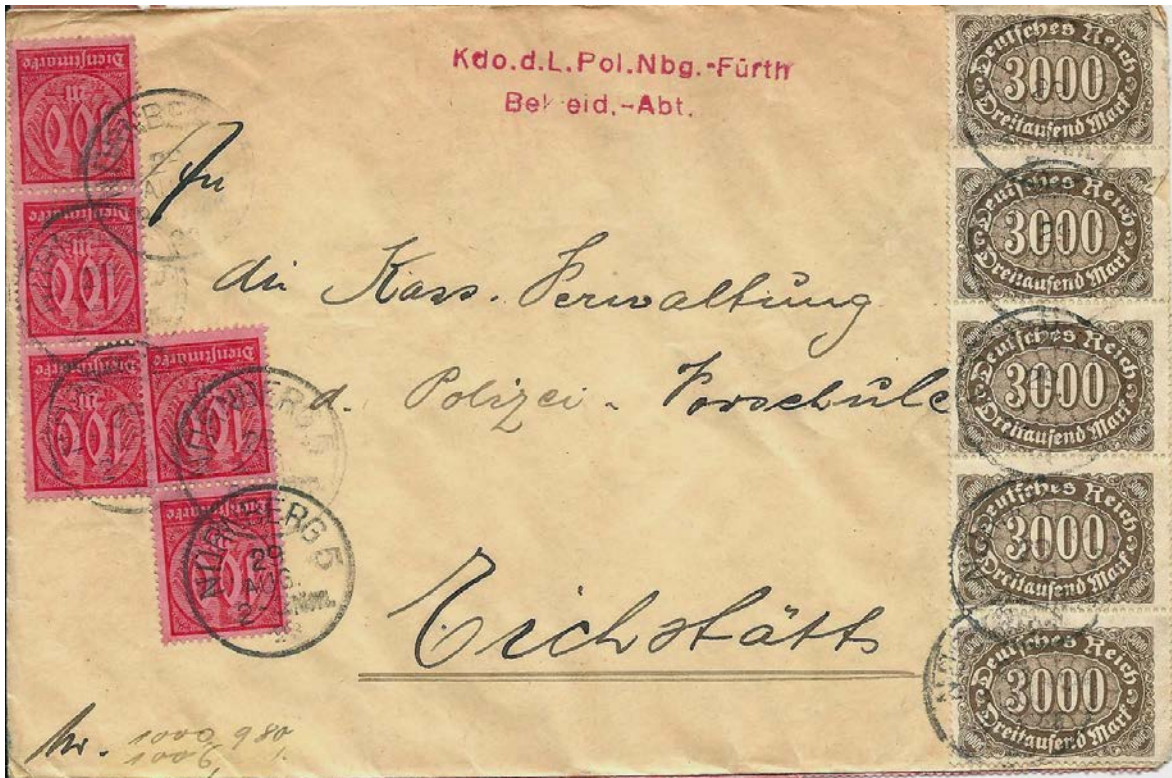 Kdo.d.L.Pol.Nbg.-Fürth
Bekleid.-Abt.
An
die Kass. Verwaltung
d. Polizei - Vorschule
Eichstätt
Nr. 1000 980
1006
Dienstmarke
100
M
Dienstmarke
100
M
Dienstmarke
100
M
Dienstmarke
100
Dienstmarke
100
NÜRNBERG 5
29
AUG.
Deutsches Reich
3000
Dreitausend Mark
Deutsches Reich
3000
Dreitausend Mark
Deutsches Reich
3000
Dreitausend Mark
Deutsches Reich
3000
Dreitausend Mark
Deutsches Reich
3000
Dreitausend Mark